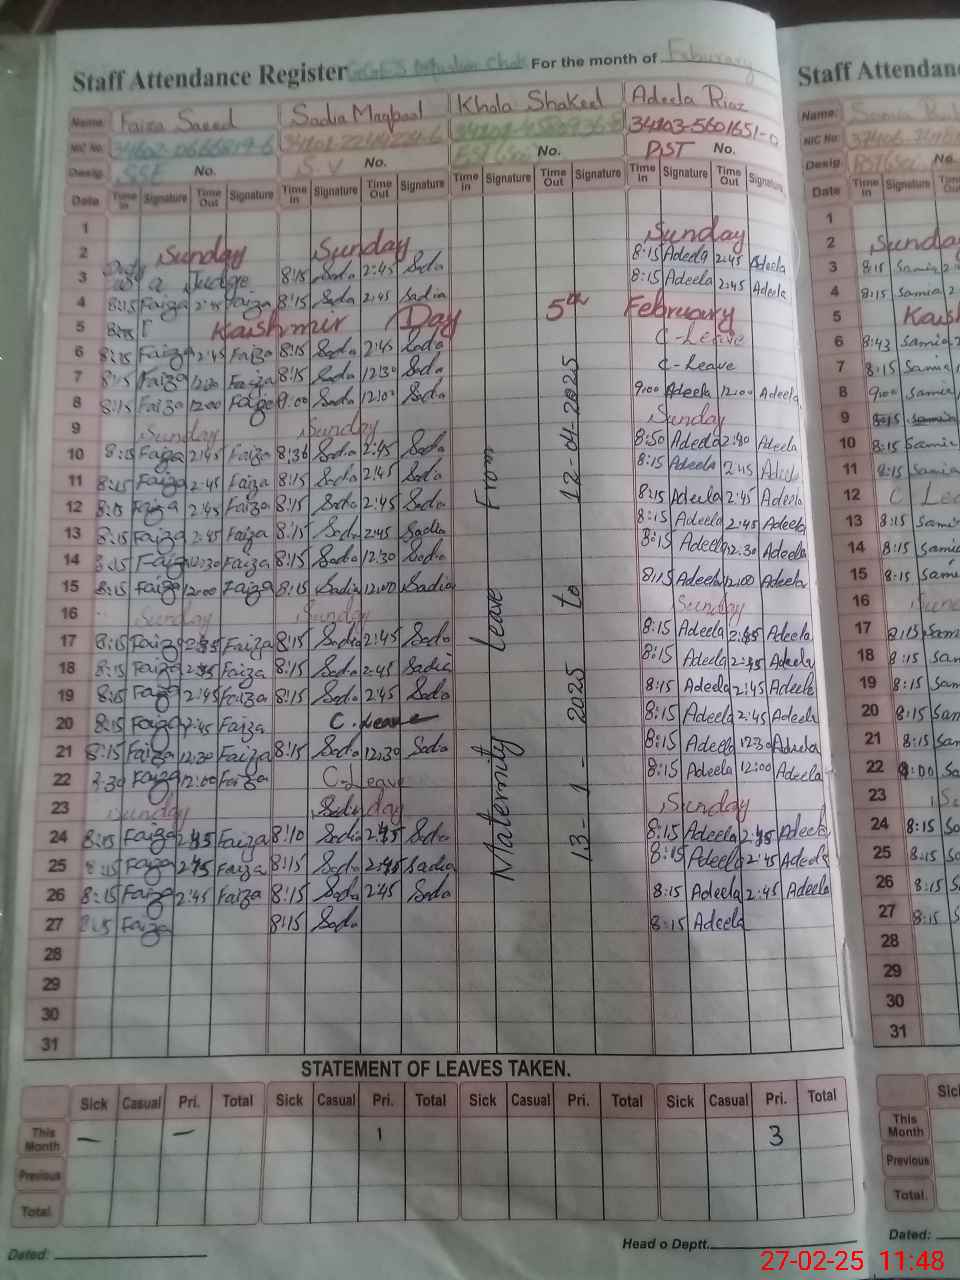 Staff Attendance Register For the month of February
Staff Attendan
Name: Faiza Saeed Sadia Maqbool Khala Shakeel Adeela Riaz
Name:
NIC No. 34103-5601651-0
NIC No.
Desig. SSE No. S.V No. No. PST No.
Desig. No.
Date Time In Signature Time Out Signature Time In Signature Time Out Signature Time In Signature Time Out Signature Time In Signature Time Out Signature
Date Time In Signature Time Out
1
1
2 Sunday Sunday Sunday
2 Sunday
3 as a Judge 8:15 Sada 2:45 Sada 8:15 Adeela 2:45 Adeela
3 8:15 Samia
4 8:15 Faiza 2:45 Faiza 8:15 Sada 2:45 Sadia 8:15 Adeela 2:45 Adeela
4 8:15 Samia
5 Kashmir Day 5th February
5
6 8:15 Faiza 2:45 Faiza 8:15 Sada 2:45 Sada C-Leave
6 8:43 Samia
7 8:15 Faiza 12:30 Faiza 8:15 Sada 12:30 Sada C-Leave
7 8:15 Samia
8 8:15 Faiza 12:00 Faiza 9:00 Sada 12:00 Sada 9:00 Adeela 12:00 Adeela
8 9:00 Samia
9 Sunday Sunday Sunday
9
10 8:15 Faiza 2:45 Faiza 8:36 Sada 2:45 Sada 8:50 Adeela 2:40 Adeela
10 8:15 Samia
11 8:15 Faiza 2:45 Faiza 8:15 Sada 2:45 Sada 8:15 Adeela 2:45 Adeela
11 8:15 Samia
12 8:15 Faiza 2:45 Faiza 8:15 Sada 2:45 Sada 8:15 Adeela 2:45 Adeela
12 C Lea
13 8:15 Faiza 2:45 Faiza 8:15 Sada 2:45 Sadia 8:15 Adeela 2:45 Adeela
13 8:15 Sami
14 8:15 Faiza 12:30 Faiza 8:15 Sada 12:30 Sadia 8:15 Adeela 12:30 Adeela
14 8:15 Samia
15 8:15 Faiza 12:00 Faiza 8:15 Sadia 12:00 Sadia 8:15 Adeela 12:00 Adeela
15 8:15 Sami
16 Sunday Sunday Sunday
16
17 8:15 Faiza 2:45 Faiza 8:15 Sadia 2:45 Sada 8:15 Adeela 2:45 Adeela
17 8:15 Sam
18 8:15 Faiza 2:45 Faiza 8:15 Sada 2:45 Sadia 8:15 Adeela 2:45 Adeela
18 8:15 San
19 8:15 Faiza 2:45 Faiza 8:15 Sada 2:45 Sada 8:15 Adeela 2:45 Adeela
19 8:15 Sam
20 8:15 Faiza 2:45 Faiza C. Leave 8:15 Adeela 2:45 Adeela
20 8:15 San
21 8:15 Faiza 12:30 Faiza 8:15 Sada 12:30 Sada 8:15 Adeela 12:30 Adeela
21 8:15 Sam
22 Faiza 12:00 Faiza C-Leave 8:15 Adeela 12:00 Adeela
22 9:00 Sam
23 Sunday Sunday Sunday
23
24 8:15 Faiza 2:45 Faiza 8:10 Sadia 2:45 Sada 8:15 Adeela 2:45 Adeela
24 8:15 Sa
25 8:15 Faiza 2:45 Faiza 8:15 Sada 2:45 Sadia 8:15 Adeela 2:45 Adeela
25 8:15 Sa
26 8:15 Faiza 2:45 Faiza 8:15 Sada 2:45 Sada 8:15 Adeela 2:45 Adeela
26 8:15 S
27 8:15 Faiza 8:15 Sada 8:15 Adeela
27 8:15 S
28
28
29
29
30
30
31
31
Maternity Leave From
13-1-2025 to 12-04-2025
STATEMENT OF LEAVES TAKEN.
Sick Casual Pri. Total Sick Casual Pri. Total Sick Casual Pri. Total Sick Casual Pri. Total
Sick
This Month — — 1 3
This Month
Previous
Previous
Total
Total.
Dated: Head o Deptt.
Dated:
27-02-25 11:48